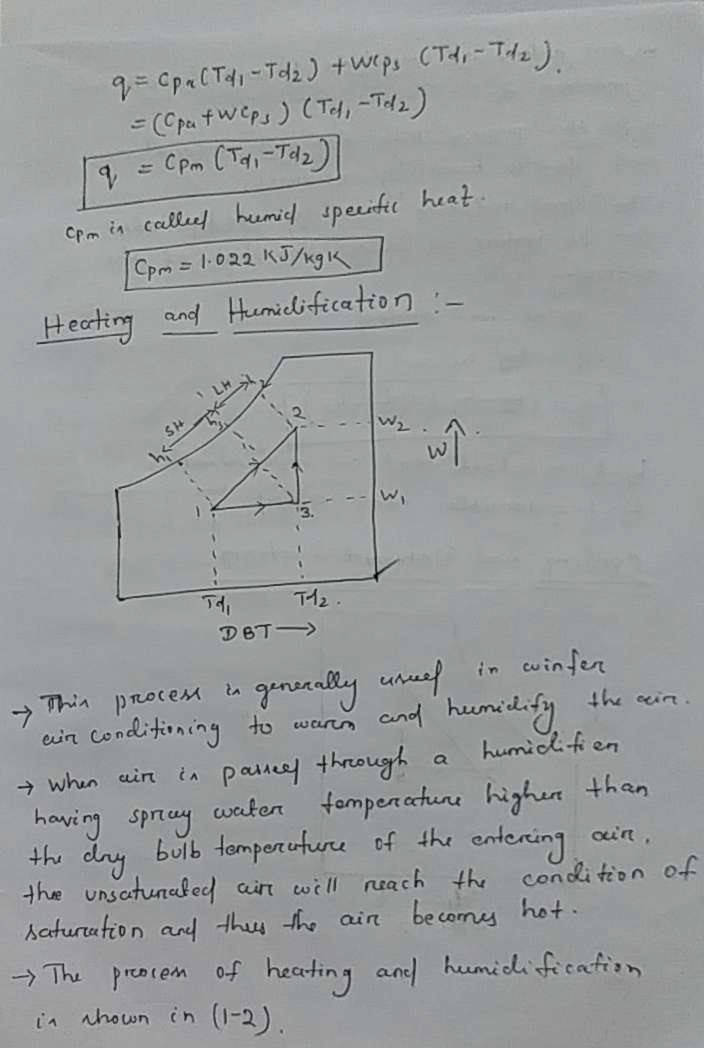 q = Cpa(Td₁-Td₂) + WCps (Td₁-Td₂).
= (Cpa + WCps) (Td₁-Td₂)
q = Cpm (Td₁-Td₂)
Cpm is called humid specific heat.
Cpm = 1.022 KJ/kgK
Heating and Humidification :-
SH LH
h₁ h₃ h₂
2 W₂
W
1 3. W₁
Td₁ Td₂.
DBT →
→ This process is generally used in winter
air conditioning to warm and humidify the air.
→ When air is passed through a humidifier
having spray water temperature higher than
the dry bulb temperature of the entering air,
the unsaturated air will reach the condition of
saturation and thus the air becomes hot.
→ The process of heating and humidification
is shown in (1-2).